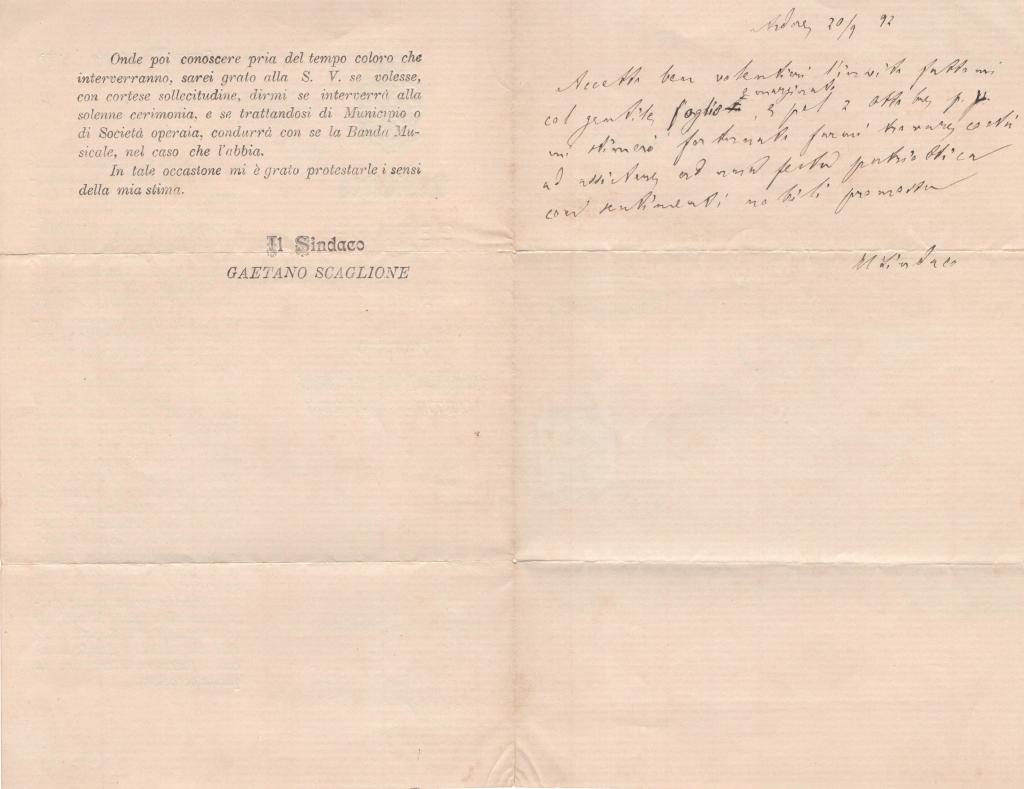 Onde poi conoscere pria del tempo coloro che
interverranno, sarei grato alla S. V. se volesse,
con cortese sollecitudine, dirmi se interverrà alla
solenne cerimonia, e se trattandosi di Municipio o
di Società operaia, condurrà con se la Banda Mu-
sicale, nel caso che l'abbia.
In tale occastone mi è grato protestarle i sensi
della mia stima.
Il Sindaco
GAETANO SCAGLIONE
Ardore 20/9 92
Accetto ben volentieri l'invito fattomi
emarginato
col gentile foglio, e pel 2 ottobre p.
mi stimerò fortunato farmi trovare costì
ad assistere ad una festa patriottica
con sentimenti nobili promossa
Il Sindaco